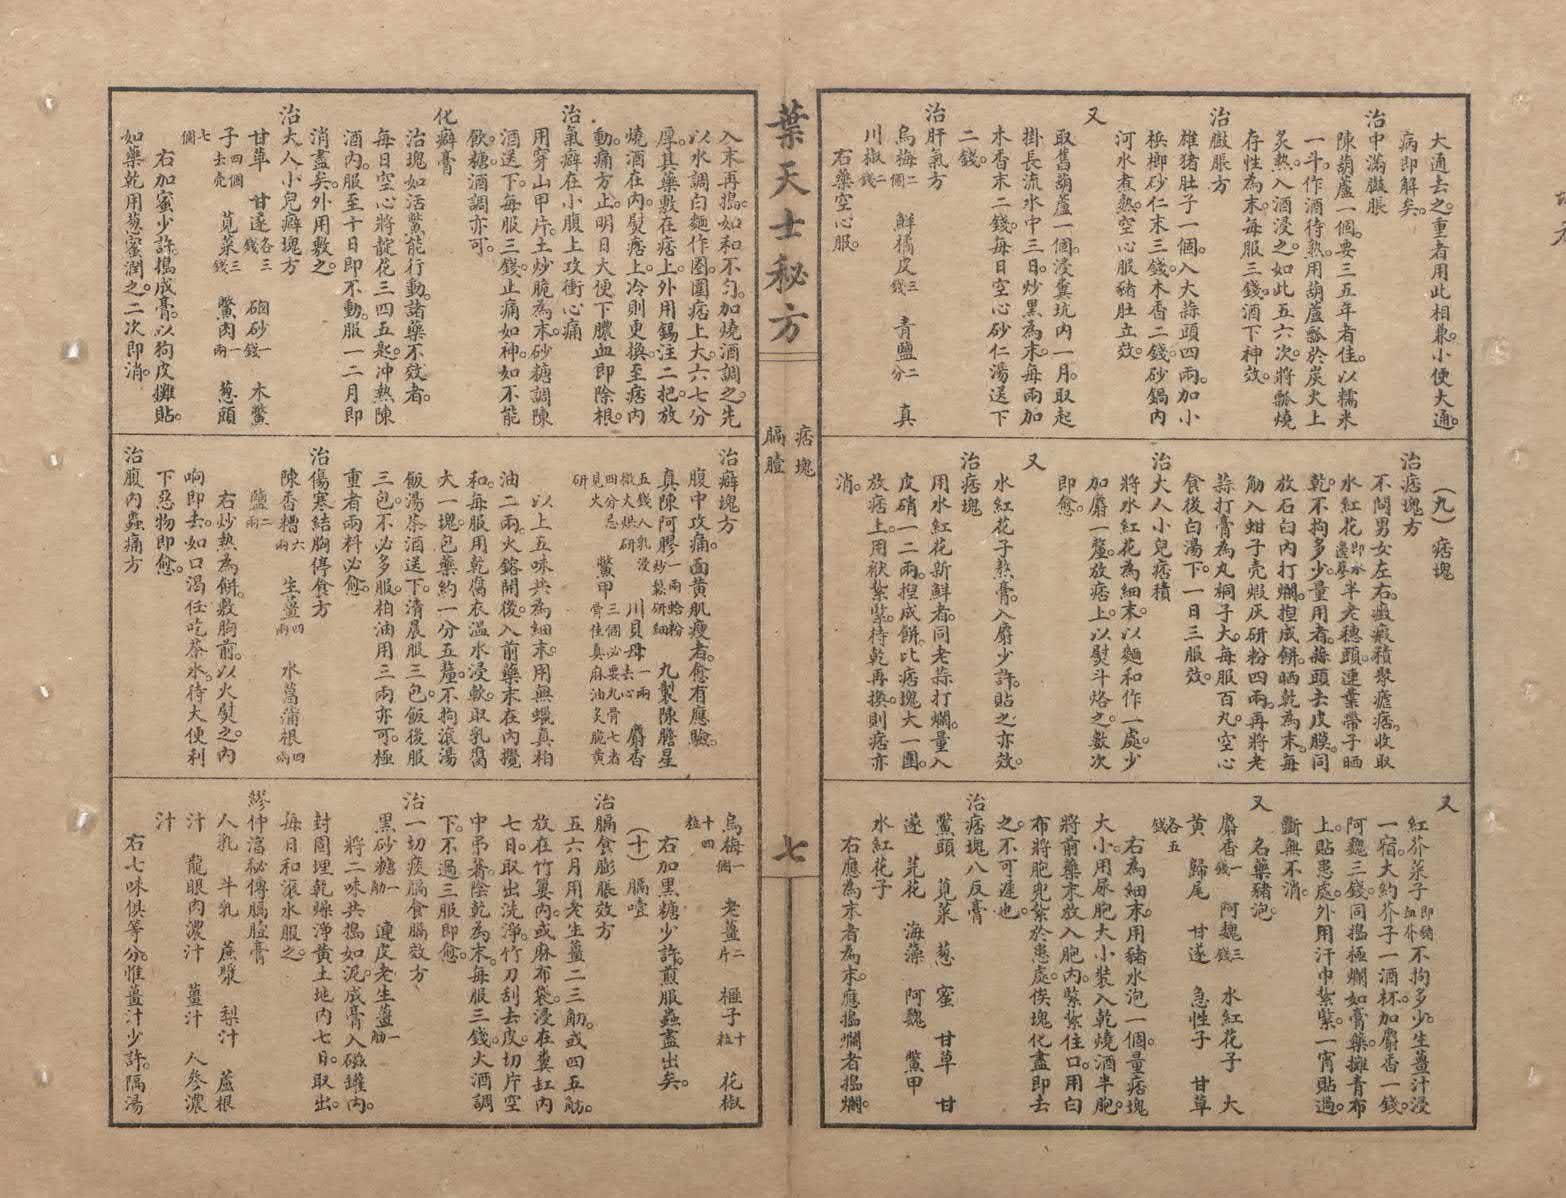 大通去之重者用此相兼。小便大通。
病即解矣。
治中滿臌脹
陳葫蘆一個。要三五年者佳。以糯米
一斗。作酒待熟。用葫蘆瓢於炭火上
炙熱。入酒浸之。如此五六次。將瓢燒
存性為末。每服三錢。酒下神效。
治臌脹方
雄猪肚子一個。入大蒜頭四兩。加小
檳榔砂仁末三錢。木香二錢。砂鍋內
河水煮熱。空心服豬肚立效。
又
取舊葫蘆一個。浸糞坑內一月。取起
掛長流水中三日。炒黑為末。每兩加
木香末二錢。每日空心砂仁湯送下
二錢。
治肝氣方
烏梅二個 鮮橘皮三錢 青鹽二分 真
川椒二錢
右藥空心服。
(九)痞塊
治痞塊方
不問男女左右。癥瘕積聚瘧痞。收取
水紅花即水邊蓼半老穗頭。連葉帶子晒
乾。不拘多少。量用者。蒜頭去皮膜。同
放石臼內打爛。揑成餅。晒乾為末。每
觔入蚶子壳煅灰研粉四兩。再將老
蒜打膏為丸桐子大。每服百丸。空心
食後白湯下。一日三服效。
治大人小兒痞積
將水紅花為細末。以麵和作一處。少
加麝一釐。放痞上。以熨斗烙之。數次
即愈。
又
水紅花子熬膏。入麝少許。貼之亦效。
治痞塊
用水紅花新鮮者。同老蒜打爛。量入
皮硝一二兩。揑成餅。比痞塊大一圍。
放痞上。用袱紮緊。待乾再換。則痞亦
消。
又
紅芥菜子即豬血芥不拘多少。生薑汁浸
一宿。大約芥子一酒杯。加麝香一錢。
阿魏三錢。同搗極爛如膏藥。攤青布
上。貼患處。外用汗巾紮緊。一宵貼過。
斷無不消。
又 名藥豬泡。
麝香一錢 阿魏三錢 水紅花子 大
黃 歸尾 甘遂 急性子 甘草
各五錢
右為細末。用豬水泡一個。量痞塊
大小。用尿胞大小裝入乾燒酒半胞。
將前藥末放入胞內。緊紮住口。用白
布將胞兜紮於患處。俟塊化盡即去
之。不可遲也。
治痞塊八反膏
鱉頭 莧菜 葱 蜜 甘草 甘
遂 芫花 海藻 阿魏 鱉甲
水紅花子
右應為末者為末。應搗爛者搗爛。
葉天士秘方
痞塊
膈噎
七
入末再搗。如和不勻。加燒酒調之。先
以水調白麵作圈。圍痞上。大六七分
厚。其藥敷在痞上。外用錫注二把。放
燒酒在內。熨痞上。冷則更換。至痞內
動痛方止。明日大便下膿血即除根。
治氣癖在小腹上攻衝心痛
用穿山甲片。土炒脆為末。砂糖調陳
酒送下。每服三錢。止痛如神。如不能
飲。糖酒調亦可。
化癖膏
治塊如活鱉能行動。諸藥不效者。
每日空心將靛花三四五匙。冲熱陳
酒內。服至十日即不動。服一二月即
消盡矣。外用敷之。
治大人小兒癖塊方
甘草 甘遂各三錢 硇砂一錢 木鱉
子四個去壳 莧菜三錢 鱉肉一兩 葱頭
七個
右加蜜少許。搗成膏。以狗皮攤貼。
如藥乾。用葱蜜潤之。二次即消。
治癖塊方
腹中攻痛。面黃肌瘦者。愈有應驗。
真陳阿膠一兩蛤粉炒鬆研細 九製陳膽星
五錢人乳浸微火烘研 川貝母一兩去心 麝香
四分忌見火研 鱉甲三個必要九骨七者骨佳真麻油炙脆黃
以上五味。共為細末。用無蠟真柏
油二兩。火鎔開後。入前藥末在內攪
和。每服用乾腐衣溫水浸軟。取乳腐
大一塊。包藥約一分五釐。不拘滾湯
飯湯茶酒送下。清晨服三包。飯後服
三包。不必多服。柏油用三兩亦可。極
重者兩料必愈。
治傷寒結胸停食方
陳香糟六兩 生薑四兩 水菖蒲根四兩
鹽二兩
右炒熱為餅。敷胸前。以火熨之。內
响即去。如口渴任吃茶水。待大便利
下惡物即愈。
治腹內蟲痛方
烏梅一個 老薑二片 榧子十粒 花椒
十四粒
右加黑糖少許。煎服。蟲盡出矣。
(十)膈噎
治膈食膨脹效方
五六月用老生薑二三觔。或四五觔。
放在竹簍內。或麻布袋。浸在糞缸內
七日。取出洗淨。竹刀刮去皮。切片。空
中弔著。陰乾為末。每服三錢。火酒調
下。不過三服即愈。
治一切痰膈食膈效方
黑砂糖一觔 連皮老生薑一觔
將二味共搗如泥。成膏。入磁罐內。
封固。埋乾燥淨黃土地內。七日。取出。
每日和滾水服之。
繆仲湻秘傳膈膪膏
人乳 牛乳 蔗漿 梨汁 蘆根
汁 龍眼肉濃汁 薑汁 人參濃
汁
右七味俱等分。惟薑汁少許。隔湯